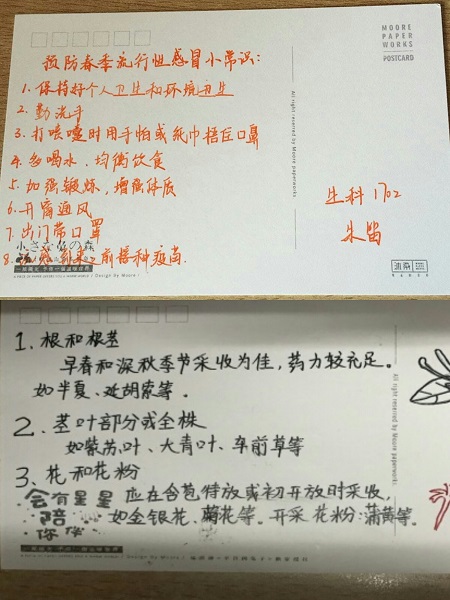 MOORE
PAPER
WORKS
POSTCARD
预防春季流行性感冒小常识:
1. 保持好个人卫生和环境卫生
2. 勤洗手
3. 打喷嚏时用手帕或纸巾捂住口鼻
4. 多喝水,均衡饮食
5. 加强锻炼,增强体质
6. 开窗通风
7. 出门带口罩
小さな仏の森
8. 前接种疫苗.
/ Design by Moore /
All right reserved by Moore paperworks
生科1702
1. 根和根茎
早春和深秋季节采收为佳,药力较充足。
如半夏、延胡索等。
2. 茎叶部分或全株
如紫苏叶、大青叶、车前草等
3. 花和花粉
应在含苞待放或初开放时采收,
如金银花、菊花等。开采花粉:蒲黄等。
会有星星
陪
你伴
All right reserved by Moore paperworks